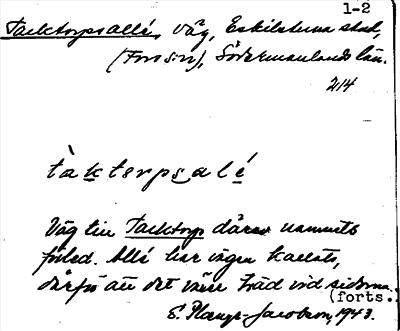 1-2
Tacktorpsallé, väg, Eskilstuna stad,
(Fors sn), Södermanlands län.
214
tàkterpsalé
Väg till Tacktorp därav namnets
förled. Allé har vägen kallats,
därför att det växer träd vid sidorna.
(forts.)
E. Plange-Jacobson, 1943.